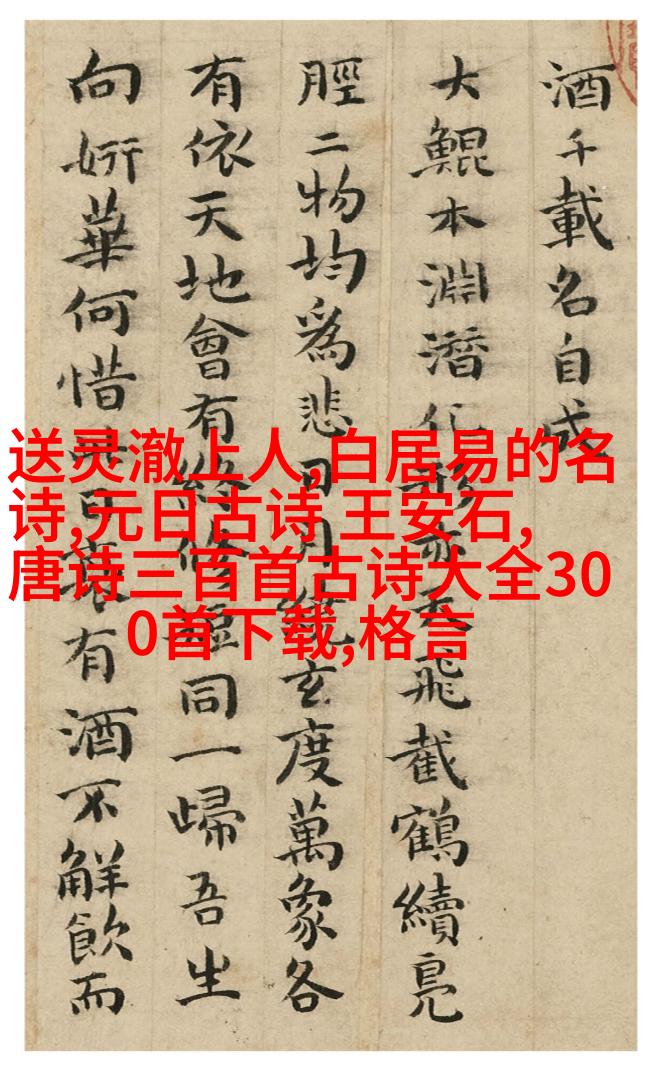 酒千載名自成
大鯤本淵潛化形亦天飛截鶴續鳧
脛二物均爲悲日月繞玄度萬象各
有依天地會有終修短同一歸吾生
向妍華何惜日衰有酒不解飲而
送灵澈上人,白居易的名
诗,元日古诗 王安石,
唐诗三百首古诗大全30
0首下载,格言